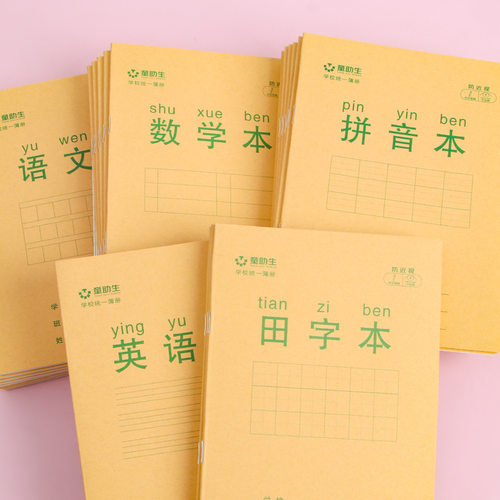 yu wen
语文
学
班
姓
童助生
学校统一簿册
shu xue ben
数学本
童助生
学校统一簿册
防近视
pin yin ben
拼音本
童助生
学校统一簿册
ying yu
英语
童助生
学校统一簿册
防近视
tian zi ben
田字本